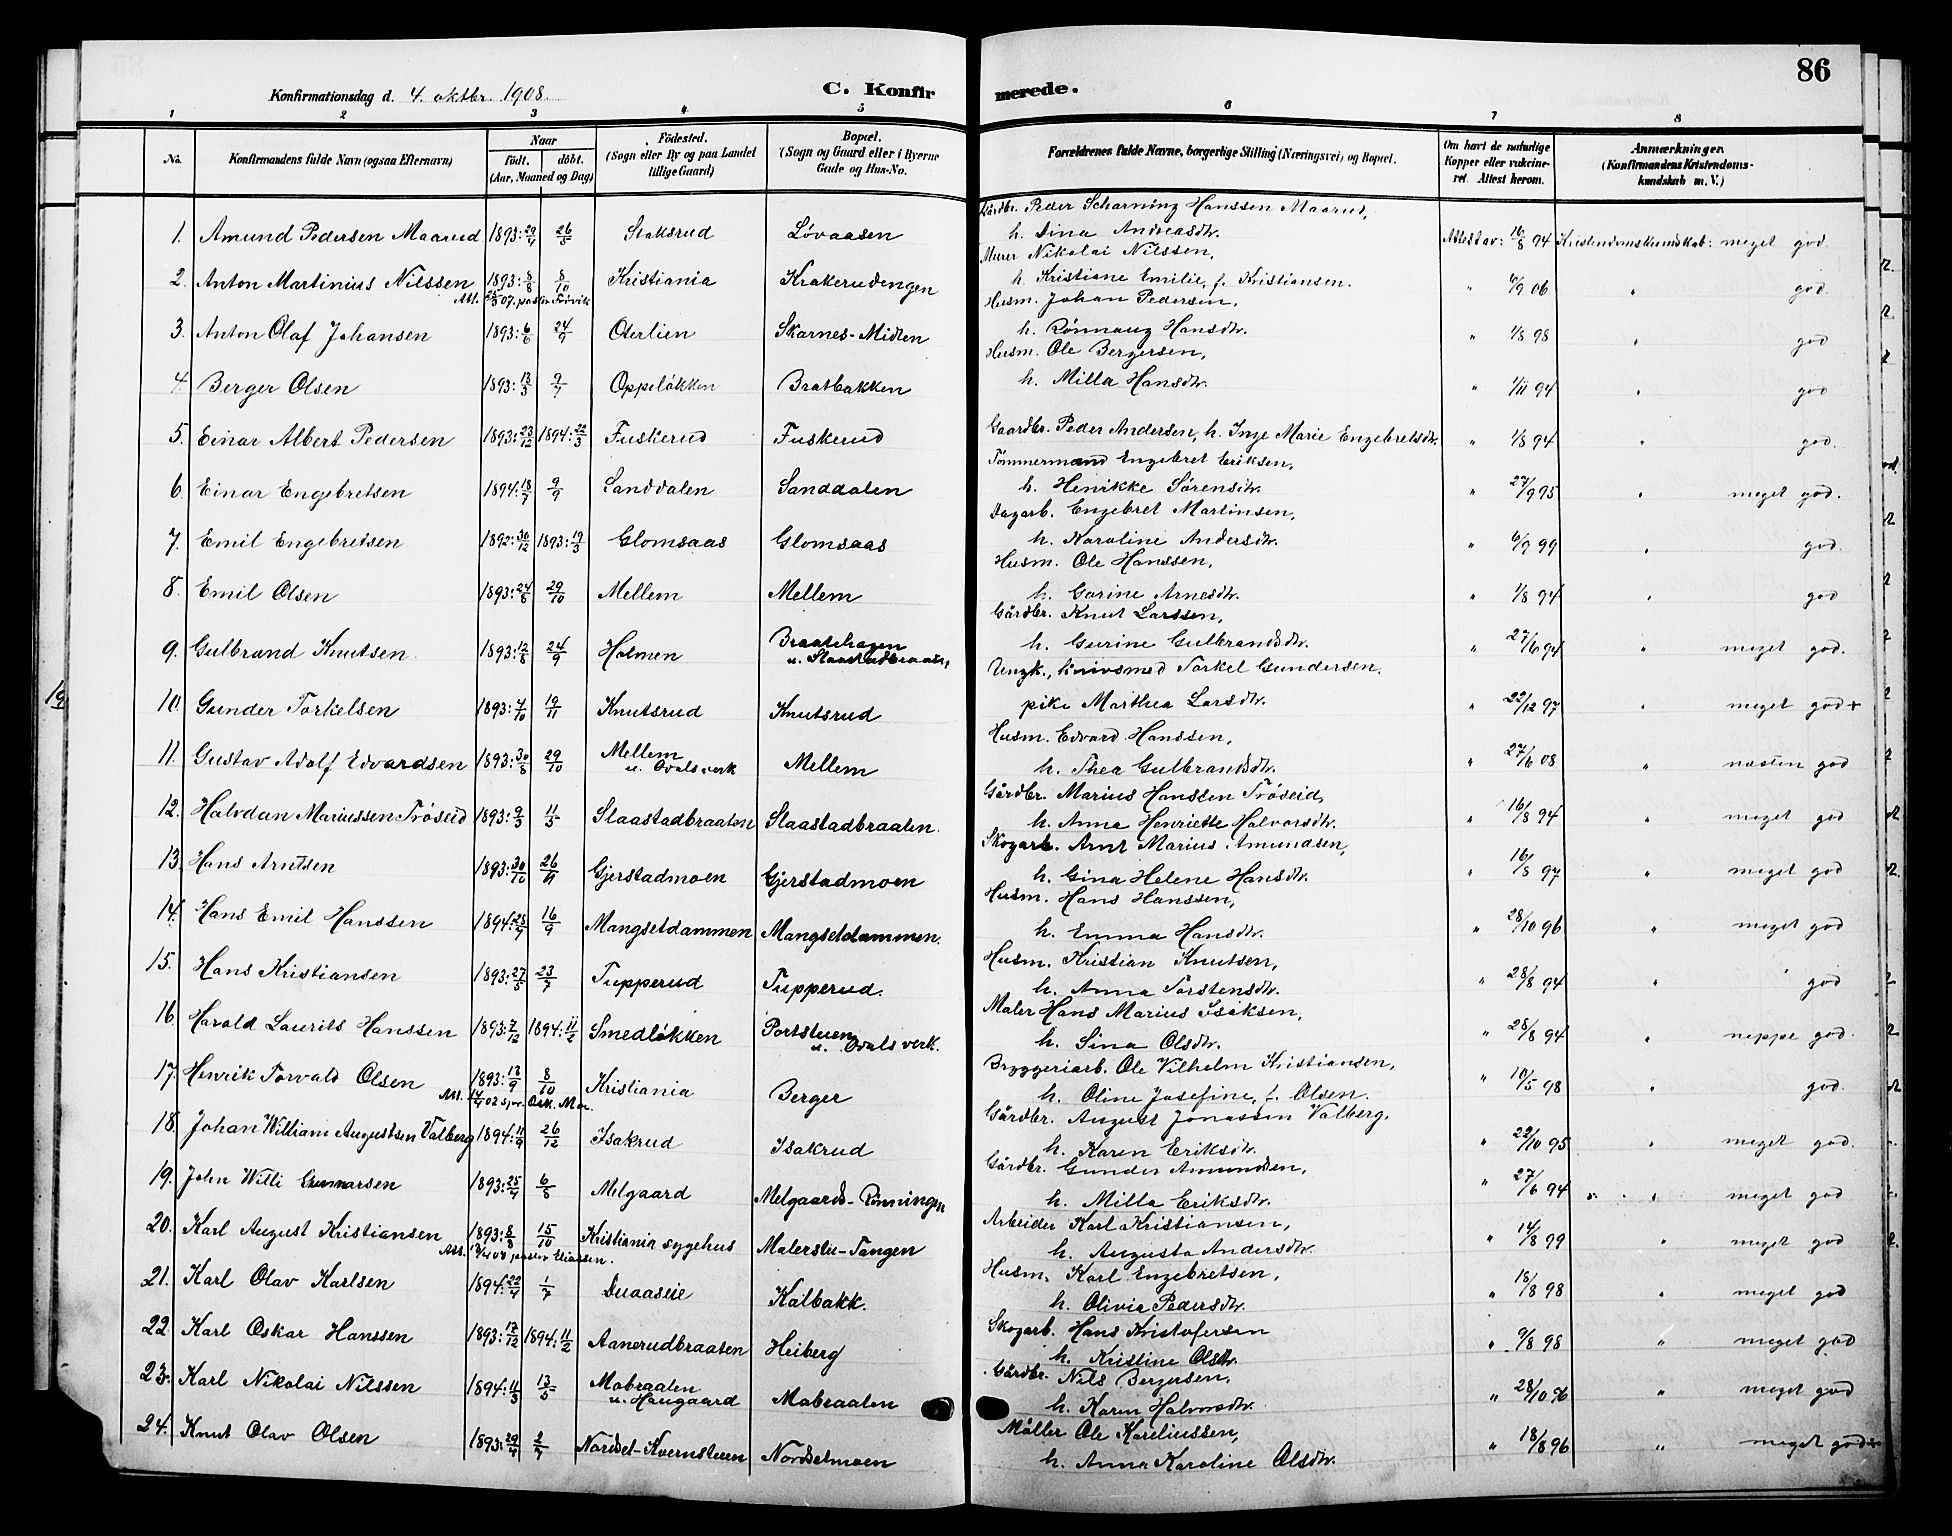 Konfirmationsdag d. 4. oktbr. 1908.
C. Konfirmerede.
86
1 2 3 4 5 6 7 8
No. Konfirmandens fulde Navn (ogsaa Efternavn) Naar födt. döbt. (Aar, Maaned og Dag) Födested. (Sogn eller By og paa Landet tillige Gaard) Bopæl. (Sogn og Gaard eller i Byerne Gade og Hus-No. Forældrenes fulde Navne, borgerlige Stilling (Næringsvei) og Bopæl. Om havt de naturlige Kopper eller vakcineret. Attest herom. Anmærkninger. (Konfirmandens Kristendomskundskab m. V.)
1. Amund Pedersen Maarud 1893: 29/4 26/5 Staksrud Løvaasen Gårdbr. Peder Scharning Hanssen Maarud, h. Dina Andreasdtr. Attest av: 16/8 94 Kristendomskundskab: meget god.
2. Anton Martinius Nilssen 1893: 8/8 8/10 Kristiania Krakerudengen Murer Nikolai Nilssen, h. Kristiane Emilie, f. Kristiansen. " 6/9 06 " god.
Att. 25/3 07. pastor
3. Anton Olaf Johansen 1893: 6/6 24/9 Oterlien Skarnes-Midten Husm. Johan Pedersen, h. Rønnaug Hansdtr. " 1/8 98 " god
4. Berger Olsen 1893: 13/3 9/7 Oppeløkken Bratbakken Husm. Ole Bergersen, h. Milla Hansdtr. " 1/11 94 " god
5. Einar Albert Pedersen 1893: 23/12 1894: 22/3 Fuskerud Fuskerud Gaardbr. Peder Andersen, h. Inge Marie Engebretsdtr. " 1/8 94 " god.
6. Einar Engebretsen 1894: 18/7 9/9 Sanddalen Sanddalen Tömmermand Engebret Eriksen, h. Henrikke Sørensdtr. " 27/9 95 " meget god.
7. Emil Engebretsen 1892: 30/12 1893: 19/3 Glomsaas Glomsaas Dagarb. Engebret Martinsen, h. Karoline Andersdtr. " 6/9 99 " god.
8. Emil Olsen 1893: 24/8 29/10 Mellem Mellem Husm. Ole Hanssen, h. Gorine Arnesdtr. " 1/8 94 " god
9. Gulbrand Knutsen 1893: 12/8 24/9 Holmen Braatehagen u. Slaastadbraaten Gårdbr. Knut Larssen, h. Gurine Gulbrandsdtr. " 27/6 94 " meget god.
10. Gunder Torkelsen 1893: 7/10 19/11 Knutsrud Knutsrud Ungk., knivsmed Torkel Gundersen, pike Marthea Larsdtr. " 22/12 97 " meget god +
11. Gustav Adolf Edvardsen 1893: 30/8 29/10 Mellem u. Ovals verk Mellem Husm. Edvard Hanssen, h. Thea Gulbrandsdtr. " 27/6 08 " næsten god
12. Halvdan Mariussen Trøseid 1893: 9/3 11/5 Slaastadbraaten Slaastadbraaten. Gårdbr. Marius Hanssen Trøseid, h. Anna Henriette Halvorsdtr. " 16/8 94 " meget god
13. Hans Arntsen 1893: 30/10 26/11 Gjerstadmoen Gjerstadmoen Skogarb. Arnt Marius Amundsen, h. Gina Helene Hansdtr. " 16/8 97 " meget god
14. Hans Emil Hanssen 1894: 28/7 16/9 Mangsetdammen Mangsetdammen. Husm. Hans Hanssen, h. Emma Hansdtr. " 28/10 96 " meget god
15. Hans Kristiansen 1893: 27/5 23/7 Tupperud Tupperud. Husm. Kristian Knutsen, h. Anna Torstensdtr. " 28/8 94 " god
16. Harald Laurits Hanssen 1893: 7/12 1894: 11/2 Smedløkken Portstuen u. Ovals verk. Maler Hans Marius Isaksen, h. Sina Olsdtr. " 28/8 94 " neppe god.
17. Henrik Torvald Olsen 1893: 13/9 8/10 Kristiania Berger Bryggeriarb. Ole Vilhelm Kristiansen, h. Oline Josefine, f. Olsen. " 10/5 98 " god.
18. Johan William Augustsen Valberg 1894: 11/9 26/12 Isakrud Isakrud Gårdbr. August Jonassen Valberg, h. Karen Eriksdtr. " 22/10 95 " meget god.
19. John Willi Gunnarsen 1893: 25/4 6/8 Melgaard Melgaards-Rønningen Gårdbr. Gunder Amundsen, h. Milla Eriksdtr. " 27/6 94 " meget god
20. Karl August Kristiansen 1893: 8/3 15/10 Kristiania sygehus Malerstu-Tangen Arbeider Karl Kristiansen, h. Augusta Andersdtr. " 14/8 99 " meget god
pastor Eliassen.
21. Karl Olav Karlsen 1894: 22/4 1/7 Duaaseie Kalbakk. Husm. Karl Engebretsen, h. Olivia Pedersdtr. " 18/8 98 " meget god
22. Karl Oskar Hanssen 1893: 17/12 1894: 11/2 Aanerudbraaten Heiberg Skogarb. Hans Kristofersen h. Kristine Olsdtr. " 9/8 98 " meget god
23. Karl Nikolai Nilssen 1894: 11/3 13/5 Mobraaten u. Haugaard Mobraaten Gårdbr. Nils Bergersen, h. Karen Halvorsdtr. " 28/10 96 " meget god
24. Knut Olav Olsen 1893: 29/4 2/7 Nordset-Kvernstuen Nordsetmoen Møller Ole Kareliussen, h. Anna Karoline Olsdtr. " 18/8 96 " meget god +